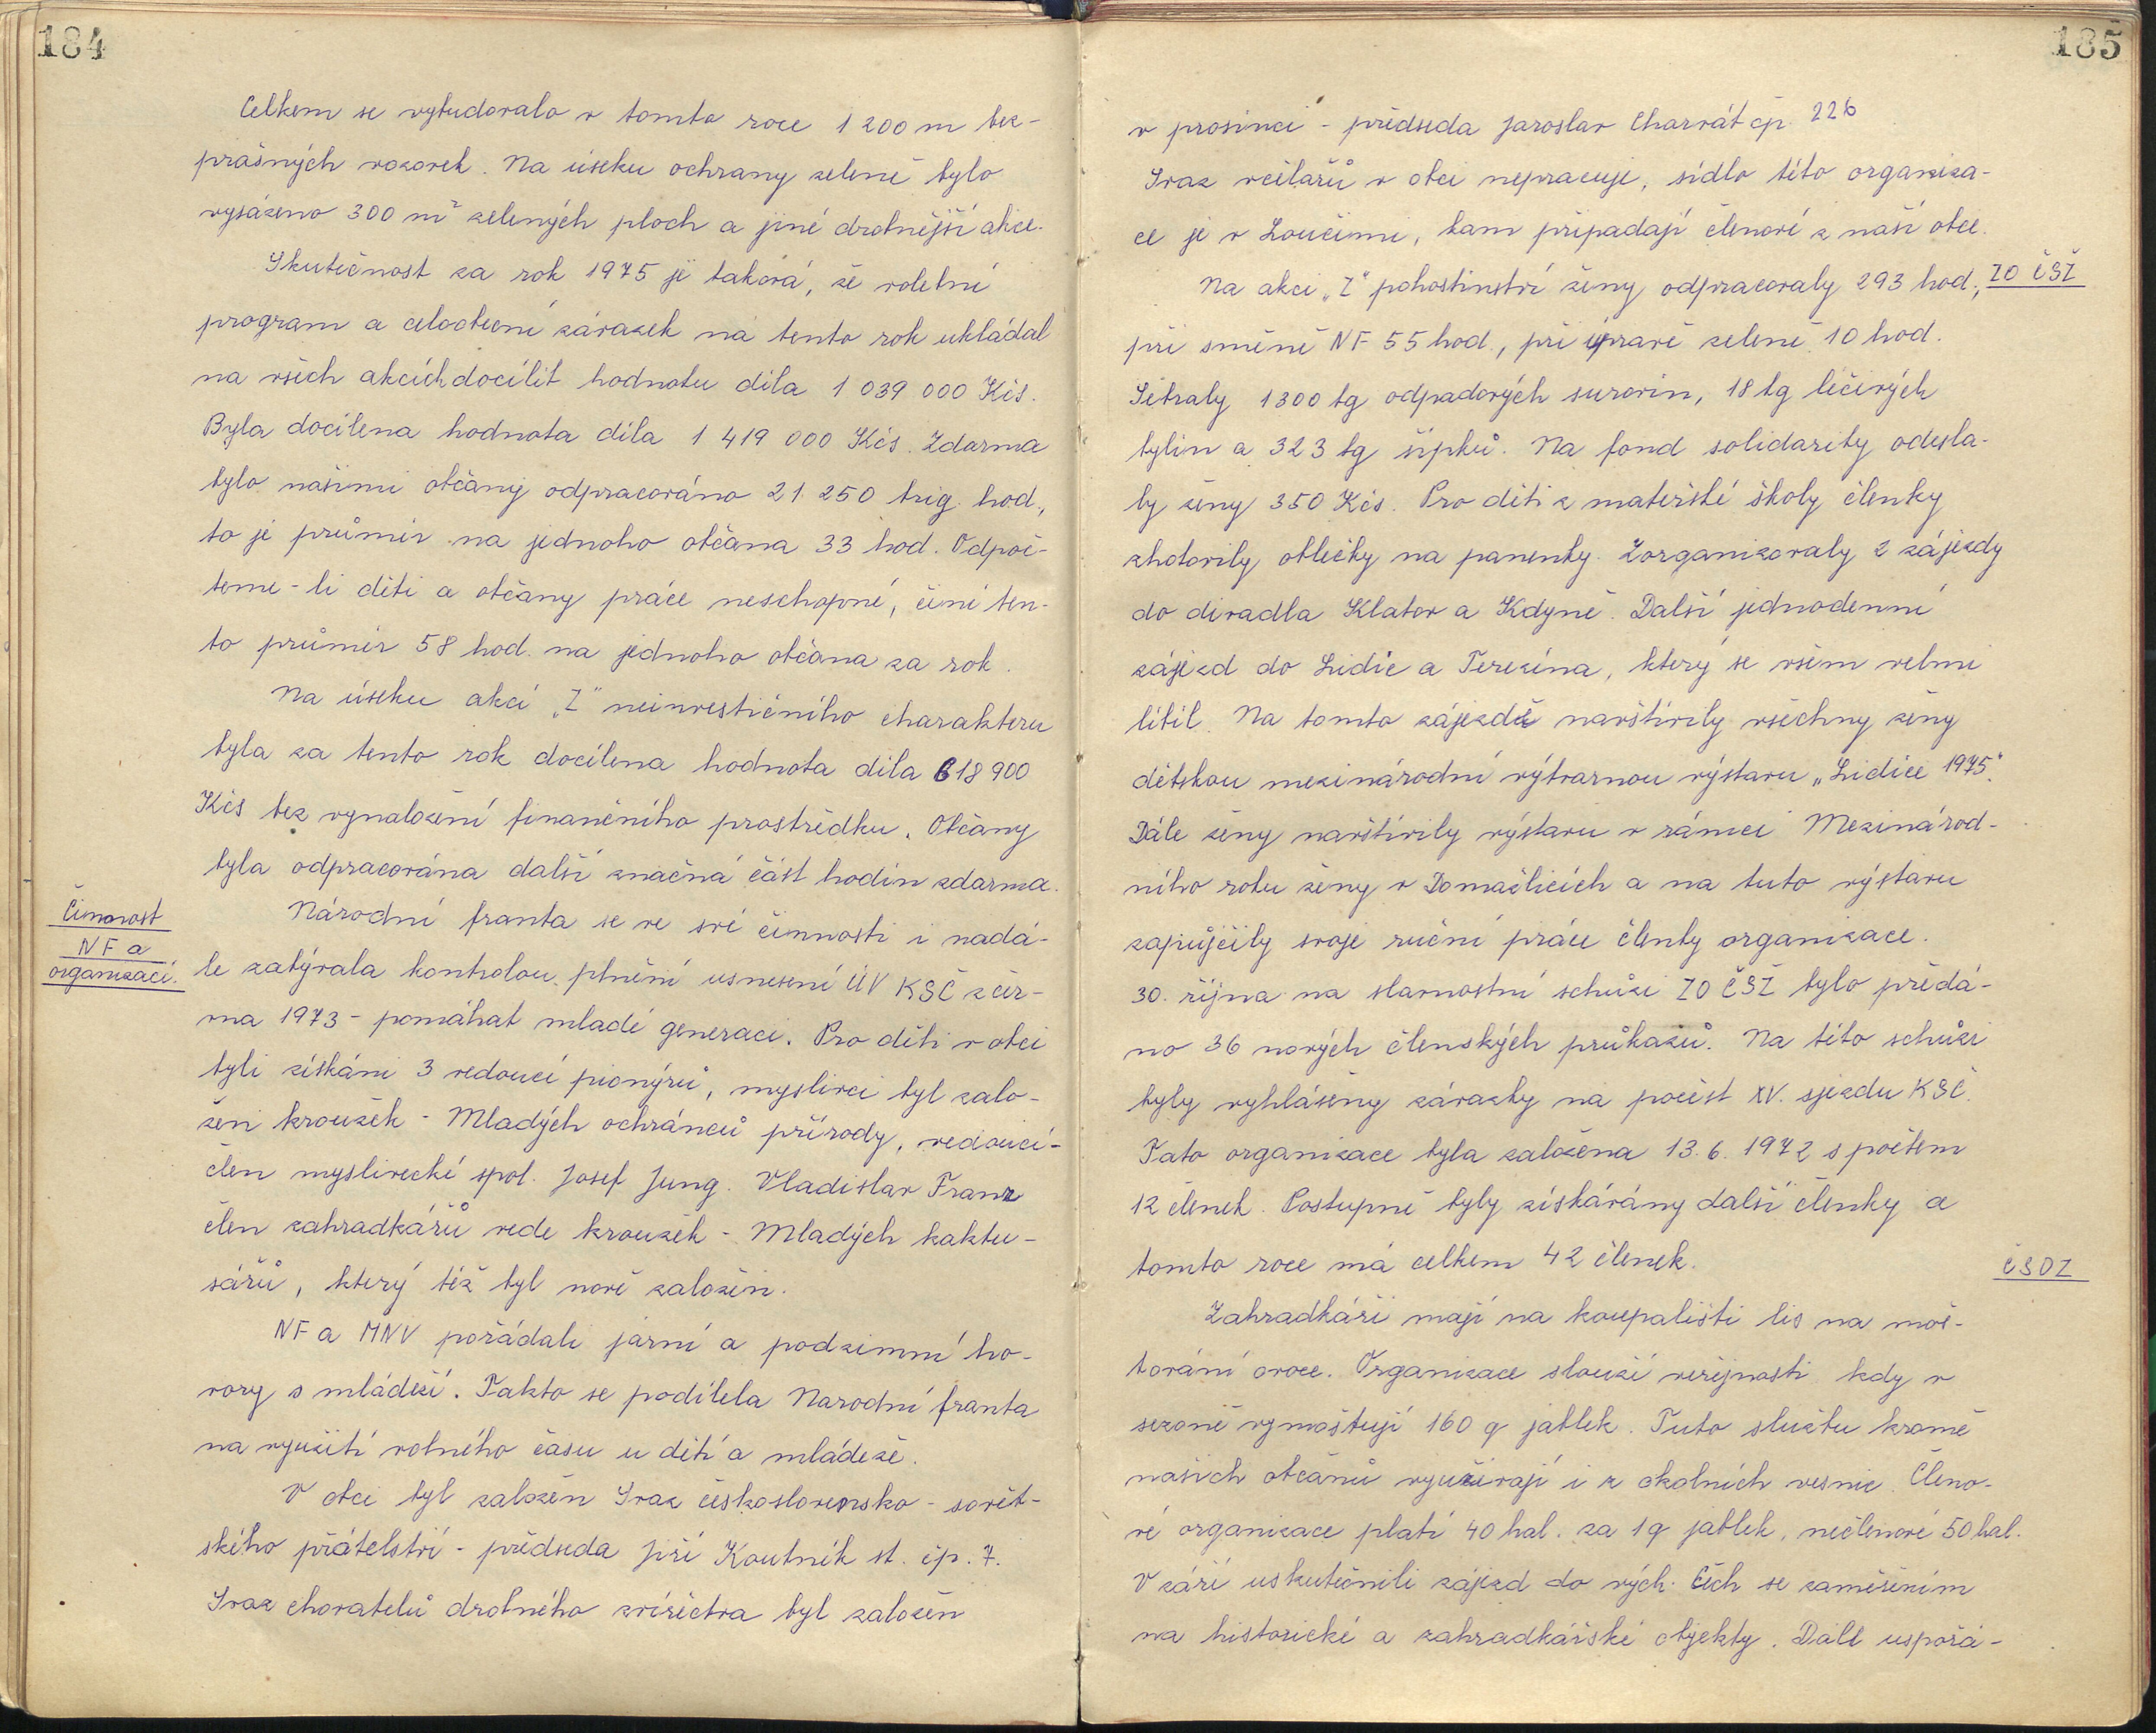 184
Celkem se vybudovalo v tomto roce 1 200 m bez-
prašných vozovek. Na úseku ochrany zeleně bylo
vysázeno 300 m² zelených ploch a jiné drobnější akce.
Skutečnost za rok 1975 je taková, že volební
program a celoobecní závazek na tento rok ukládal
na všech akcích docílit hodnotu díla 1 039 000 Kčs.
Byla docílena hodnota díla 1 419 000 Kčs. Zdarma
bylo našimi občany odpracováno 21 250 brig. hod.,
to je průměr na jednoho občana 33 hod. Odpoč-
teme-li děti a občany práce neschopné, činí ten-
to průměr 58 hod. na jednoho občana za rok.
Na úseku akcí „Z" neinvestičního charakteru
byla za tento rok docílena hodnota díla 618 900
Kčs bez vynaložení finančního prostředku. Občany
byla odpracována další značná část hodin zdarma.
Činnost
NF a
organizací.
Národní fronta se ve své činnosti i nadá-
le zabývala kontrolou plnění usnesení ÚV KSČ z čer-
vna 1973 - pomáhat mladé generaci. Pro děti v obci
byli získáni 3 vedoucí pionýrů, myslivci byl zalo-
žen kroužek - Mladých ochránců přírody, vedoucí-
člen myslivecké spol. Josef Jung. Vladislav Franz
člen zahradkářů vede kroužek - Mladých kaktu-
sářů, který též byl nově založen.
NF a MNV pořádali jarní a podzimní ho-
vory s mládeží. Takto se podílela Narodní fronta
na využití volného času u dětí a mládeže.
V obci byl založen Svaz československo - sovět-
ského přátelství - předseda Jiří Koutník st. čp. 7.
Svaz chovatelů drobného zvířectva byl založen
185
v prosinci - předseda Jaroslav Charvát čp. 226
Svaz včelařů v obci nepracuje, sídlo této organiza-
ce je v Loučimi, tam připadají členové z naší obce.
ZO ČSŽ
Na akci „Z" pohostinství ženy odpracovaly 293 hod.,
při směně NF 55 hod., při úpravě zeleně 10 hod.
Sebraly 1300 kg odpadových surovin, 18 kg léčivých
bylin a 323 kg šípků. Na fond solidarity odesla-
ly ženy 350 Kčs. Pro děti z mateřské školy členky
zhotovily oblečky na panenky. Zorganizovaly 2 zájezdy
do divadla Klatov a Kdyně. Další jednodenní
zájezd do Lidic a Terezína, který se všem velmi
líbil. Na tomto zájezdě navštívily všechny ženy
dětskou mezinárodní výtvarnou výstavu „Lidice 1975".
Dále ženy navštívily výstavu v rámci Mezinárod-
ního roku ženy v Domažlicích a na tuto výstavu
zapůjčily svoje ruční práce členky organizace.
30. října na slavnostní schůzi ZO ČSŽ bylo předá-
no 36 nových členských průkazů. Na této schůzi
byly vyhlášeny závazky na počest XV. sjezdu KSČ.
Tato organizace byla založena 13. 6. 1972 s počtem
12 členek. Postupně byly získávány další členky a
tomto roce má celkem 42 členek.
ČSOZ
Zahradkáři mají na koupališti lis na moš-
tování ovoce. Organizace slouží veřejnosti kdy v
sezoně vymoštují 160 q jablek. Tuto službu kromě
našich občanů využívají i z okolních vesnic. Členo-
vé organizace platí 40 hal. za 1 q jablek, nečlenové 50 hal.
V září uskutečnili zájezd do vých. Čech se zaměřením
na historické a zahradkářské objekty. Dále uspořá-